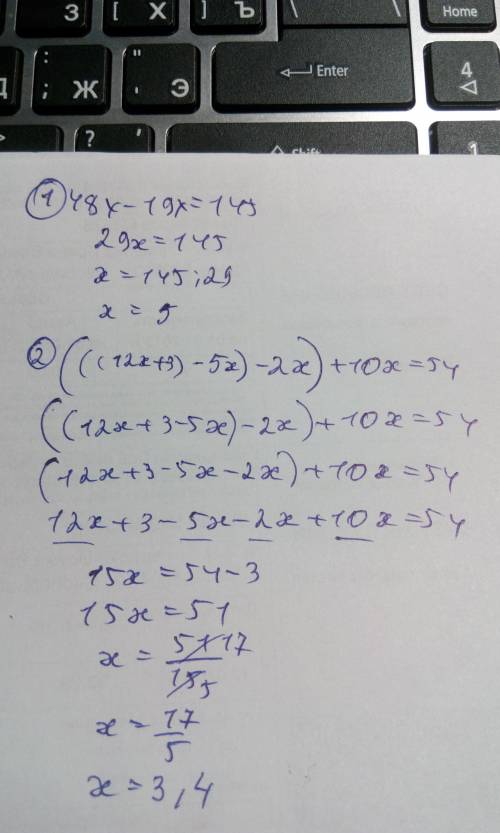 З [ Х ] Ъ \ \ Home
Д : ; Ж " ' Э Enter 4
> ? ' Shift 1
① 48x - 19x = 145
29x = 145
x = 145 : 29
x = 5
② (((12x+3) - 5x) - 2x) + 10x = 54
((12x + 3 - 5x) - 2x) + 10x = 54
(12x + 3 - 5x - 2x) + 10x = 54
12x + 3 - 5x - 2x + 10x = 54
15x = 54 - 3
15x = 51
x = 51 17 / 15 5
x = 17/5
x = 3,4